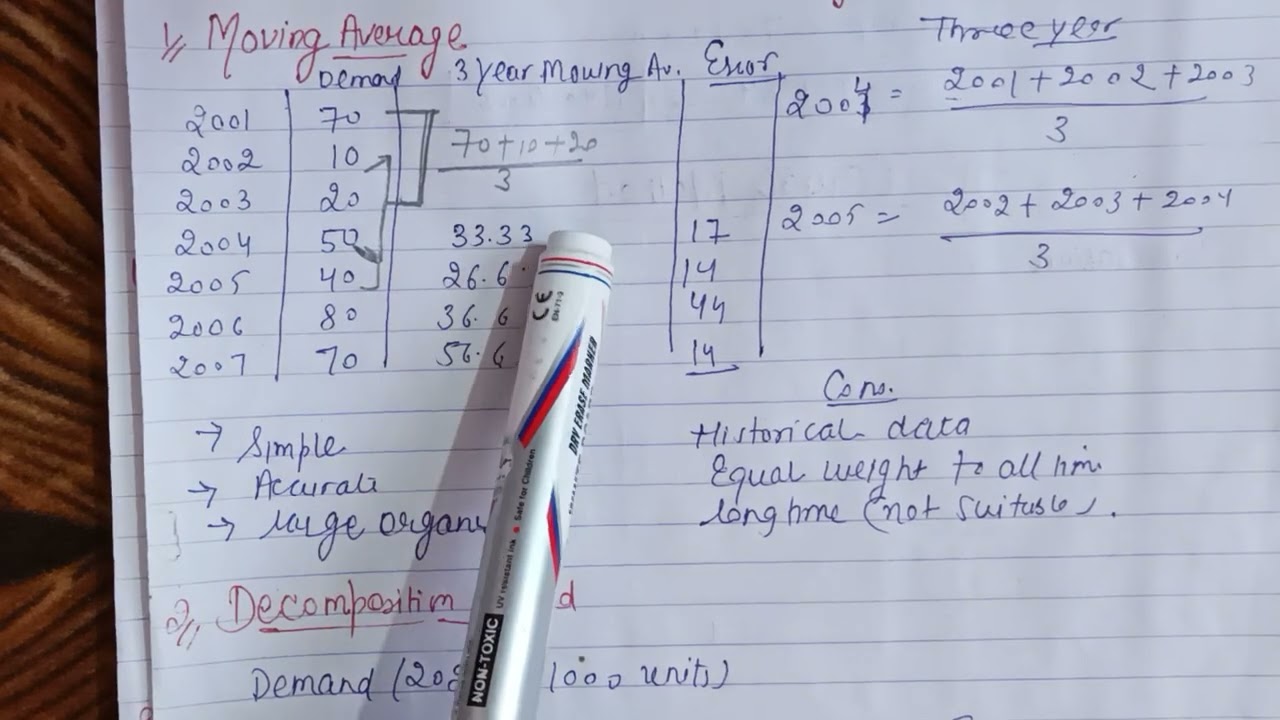 1) Moving Average
Demand 3 year Moving Av. Error
2001 70
2002 10
2003 20
2004 50 33.33 17
2005 40 26.6 14
2006 80 36.6 44
2007 70 56.6 14
70+10+20
3
Three year
2004 = 2001+2002+2003
3
2005 = 2002+2003+2004
3
→ Simple
→ Accurate
→ large organ
Cons.
Historical data
Equal weight to all
long time (not suitable).
2) Decomposition d
Demand (20 1000 units)
CE
EN-71-3
DRY ERASE MARKER
NON-TOXIC UV resistant ink • Safe for Children